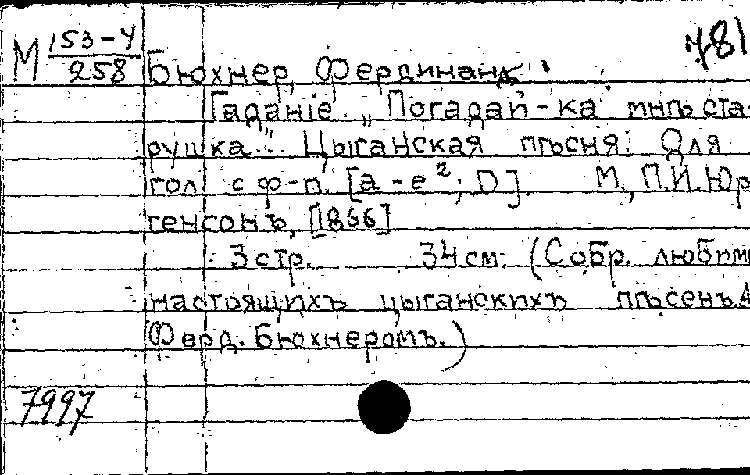 М 153-4/258
781
Бюхнер, Фердинанд.
Гаданіе „Погадай-ка мнѣ ста-
рушка" Цыганская пѣсня. Для
гол. с ф-п. [a-e²; D]. М., П.И. Юр
генсонъ, [1866]
3 стр. 34 см. (Собр. любим
настоящихъ цыганскихъ пѣсенъ
Ферд. Бюхнеромъ.)
7997